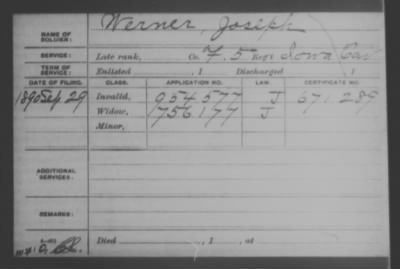 NAME OF SOLDIER: Werner, Joseph
SERVICE: Late rank, Co. F, 5 Reg't Iowa Cav
TERM OF SERVICE: Enlisted , 1 Discharged 1
DATE OF FILING. CLASS. APPLICATION NO. LAW. CERTIFICATE NO.
1890 Sep 29 Invalid, 954577 J 671289
Widow, 756177 J
Minor,
ADDITIONAL SERVICES:
REMARKS:
Died , 1 , at